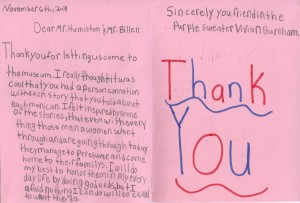 November 6th, 2014
Dear Mr. Humiston & Mr. Billen
Thank you for letting us come to
the museum. I really thought it was
cool that you had a person connation
with each story that you told about
each marican. I felt inspired by some
of the stories, that even with every
thing those men a women went
through and are going through today
they manage to persever and come
home to their familys. I will do
my best to honor them in my every
day life by doing good deeds, but I
afraid nothing I can do will
Sincerely you friend in the
Purple Sweater Vivian
Thank
You